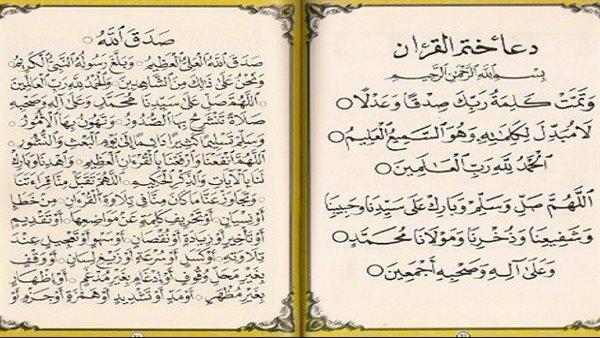 دعاء ختم القرءان
بِسْمِ اللَّهِ الرَّحْمٰنِ الرَّحِيمِ
وَتَمَّتْ كَلِمَةُ رَبِّكَ صِدْقًا وَعَدْلًا ○
لَا مُبَدِّلَ لِكَلِمَاتِهِ وَهُوَ السَّمِيعُ الْعَلِيمُ ○
الْحَمْدُ لِلَّهِ رَبِّ الْعَالَمِينَ ○
اللَّهُمَّ صَلِّ وَسَلِّمْ وَبَارِكْ عَلَى سَيِّدِنَا وَحَبِيبِنَا
وَشَفِيعِنَا وَذُخْرِنَا وَمَوْلَانَا مُحَمَّدٍ ○
وَعَلَى آلِهِ وَصَحْبِهِ أَجْمَعِينَ ○
صَدَقَ اللَّهُ ○
صَدَقَ اللَّهُ الْعَلِيُّ الْعَظِيمُ ○ وَبَلَّغَ رَسُولُهُ النَّبِيُّ الْكَرِيمُ ○
وَنَحْنُ عَلَى ذَلِكَ مِنَ الشَّاهِدِينَ ○ وَالْحَمْدُ لِلَّهِ رَبِّ الْعَالَمِينَ
اللَّهُمَّ صَلِّ عَلَى سَيِّدِنَا مُحَمَّدٍ ○ وَعَلَى آلِهِ وَصَحْبِهِ
صَلَاةً تَنْشَرِحُ بِهَا الصُّدُورُ ○ وَتَهُونُ بِهَا الْأُمُورُ ○
وَسَلِّمْ تَسْلِيمًا كَثِيرًا دَائِمًا إِلَى يَوْمِ الْبَعْثِ وَالنُّشُورِ
اللَّهُمَّ انْفَعْنَا وَارْفَعْنَا بِالْقُرْءَانِ الْعَظِيمِ ○ وَاهْدِنَا وَبَارِكْ
لَنَا بِالْآيَاتِ وَالذِّكْرِ الْحَكِيمِ ○ اللَّهُمَّ تَقَبَّلْ مِنَّا قِرَاءَتَنَا
○ وَتَجَاوَزْ عَنَّا مَا كَانَ مِنَّا فِي تِلَاوَةِ الْقُرْءَانِ ○ مِنْ خَطَإٍ
أَوْ نِسْيَانٍ ○ أَوْ تَحْرِيفِ كَلِمَةٍ عَنْ مَوَاضِعِهَا ○ أَوْ تَقْدِيمٍ
أَوْ تَأْخِيرٍ أَوْ زِيَادَةٍ أَوْ نُقْصَانٍ ○ أَوْ سَهْوٍ أَوْ تَعْجِيلٍ عِنْدَ
تِلَاوَتِهِ ○ أَوْ كَسَلٍ أَوْ سُرْعَةٍ أَوْ زَيْغِ لِسَانٍ ○ أَوْ وَقْفٍ
بِغَيْرِ مَحَلِّ وُقُوفٍ أَوْ إِدْغَامٍ بِغَيْرِ مُدْغَمٍ ○ أَوْ إِظْهَارٍ
بِغَيْرِ مُظْهَرٍ ○ أَوْ مَدٍّ أَوْ تَشْدِيدٍ أَوْ هَمْزَةٍ أَوْ جَزْمٍ أَوْ